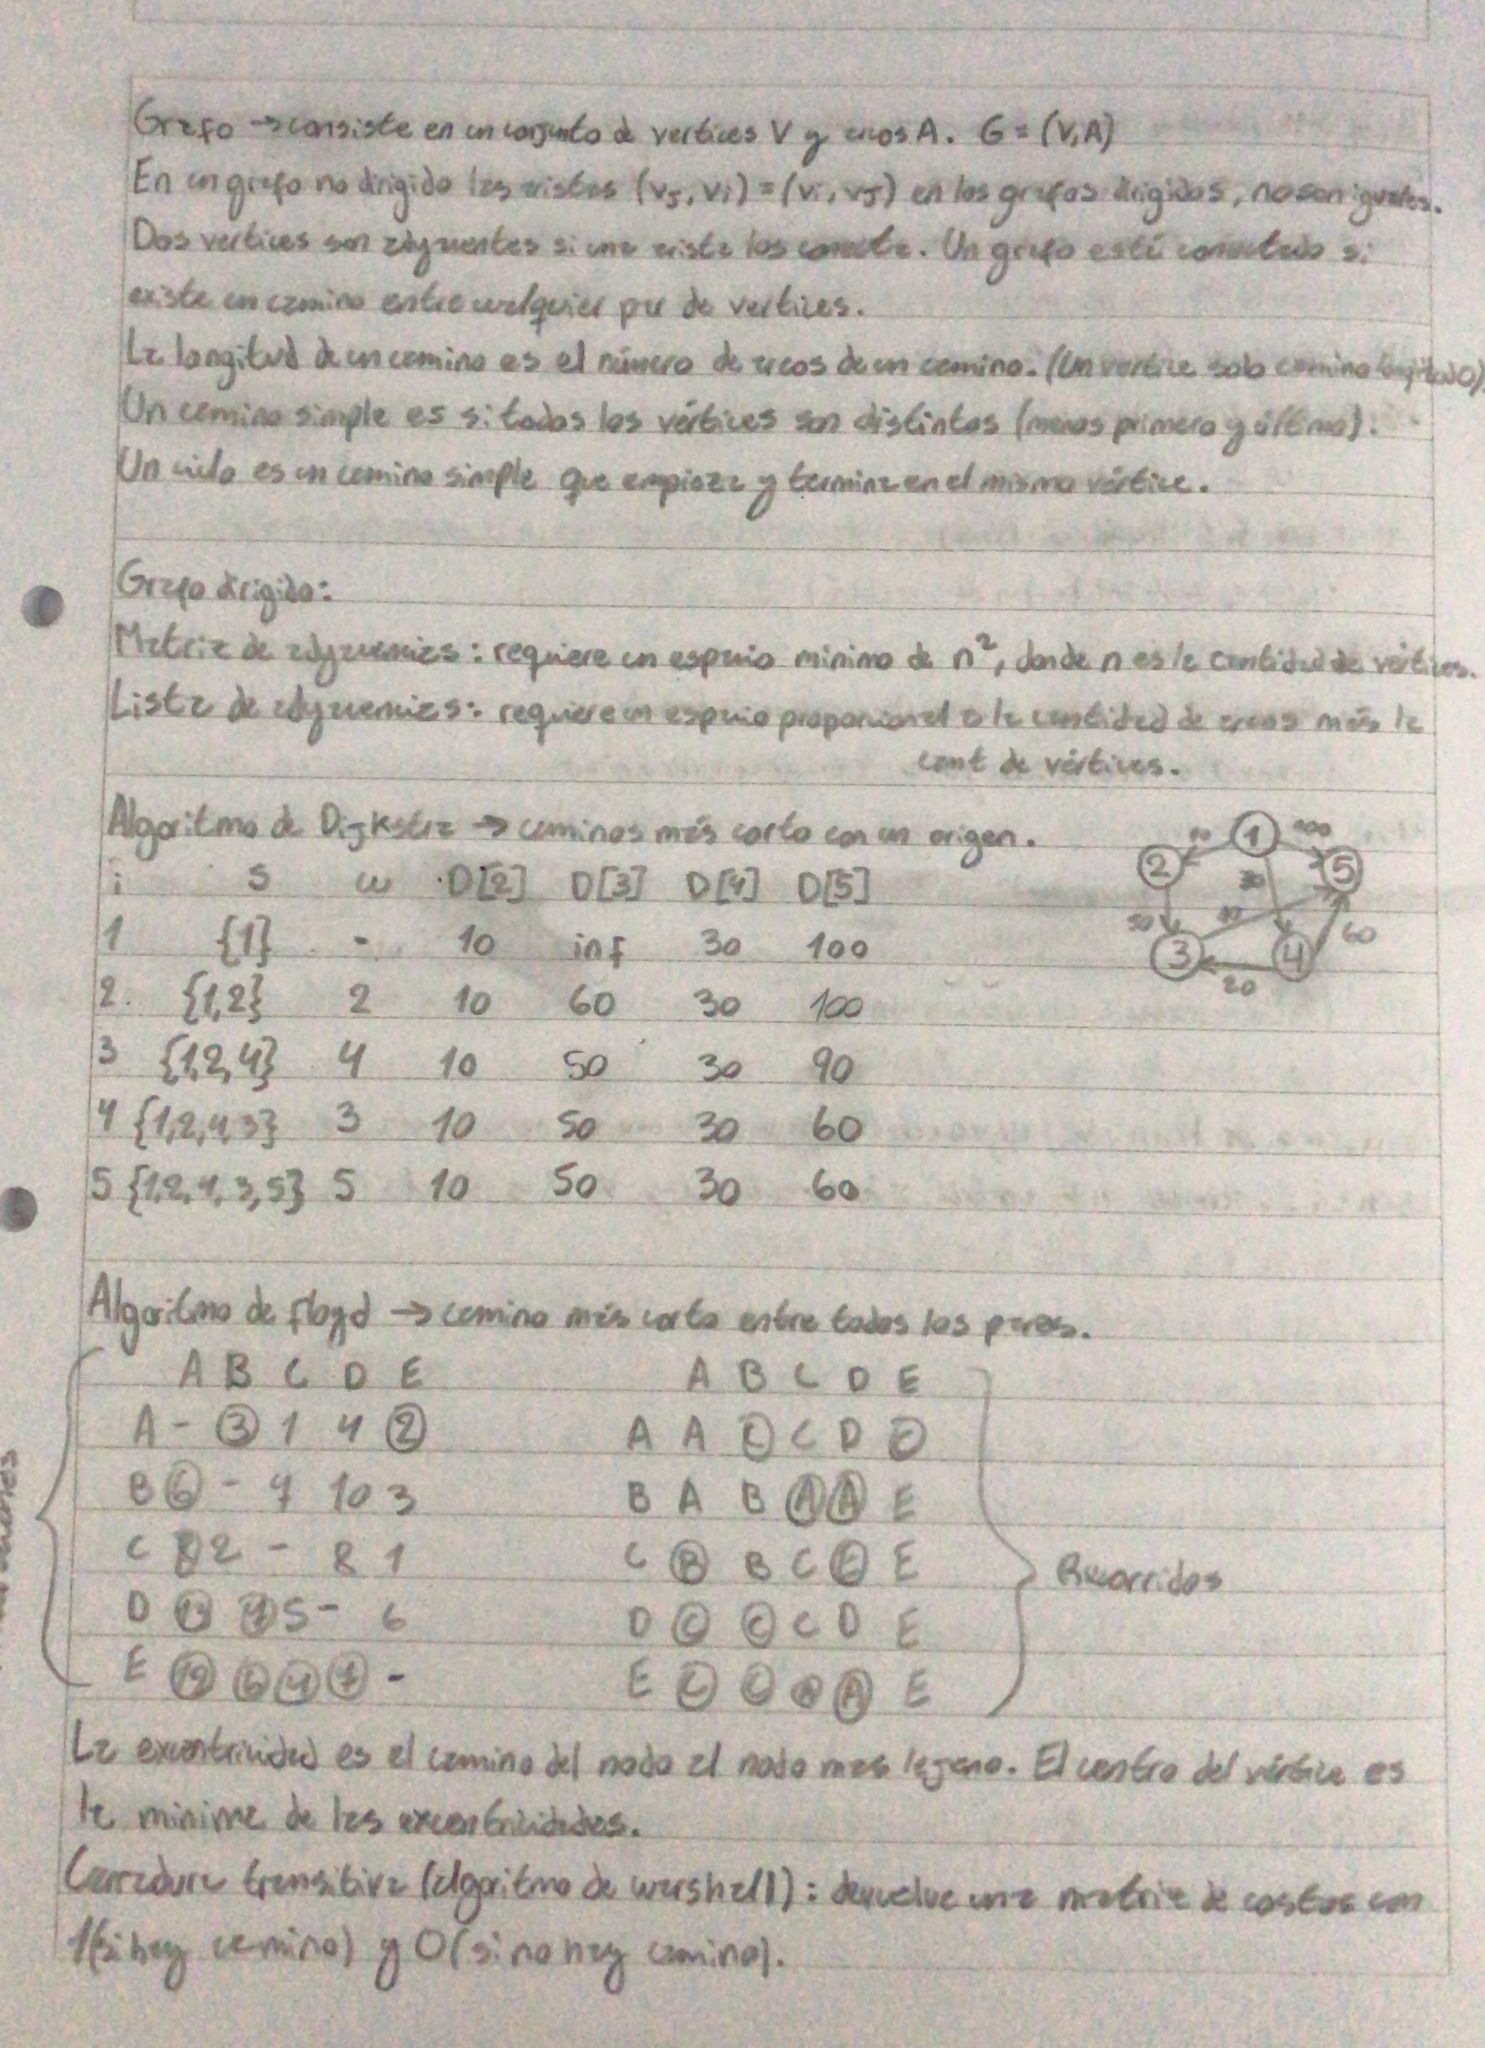 Grafo → consiste en un conjunto de vertices V y arcos A. G = (V, A)
En un grafo no dirigido las aristas (vj, vi) = (vi, vj) en los grafos dirigidos, no son iguales.
Dos vertices son adyacentes si una arista los conecta. Un grafo está conectado si
existe un camino entre cualquier par de vertices.
La longitud de un camino es el número de arcos de un camino. (Un vertice solo camino longitud 0)
Un camino simple es si todos los vértices son distintos (menos primero y último).
Un ciclo es un camino simple que empieza y termina en el mismo vértice.
Grafo dirigido:
Matriz de adyacencias: requiere un espacio minimo de n², donde n es la cantidad de vértices.
Lista de adyacencias: requiere un espacio proporcional a la cantidad de arcos más la
cant de vértices.
Algoritmo de Dijkstra → caminos más corto con un origen.
i S w D[2] D[3] D[4] D[5]
1 {1} - 10 inf 30 100
2. {1,2} 2 10 60 30 100
3 {1,2,4} 4 10 50 30 90
4 {1,2,4,3} 3 10 50 30 60
5 {1,2,4,3,5} 5 10 50 30 60
1 2 3 4 5
10 100 30 50 10 60 20
Algoritmo de floyd → camino más corto entre todos los pares.
A B C D E
A - 3 1 4 2
B 6 - 7 10 3
C 8 2 - 8 1
D 5 - 6
E 12 6 4 7 -
A B C D E
A A C C D C
B A B A A E
C B B C E
D C C C D E
E C C A E
Recorridos
La excentricidad es el camino del nodo al nodo mas lejano. El centro del vértice es
la minima de las excentricidades.
Cerradura transitiva (algoritmo de warshall): devuelve una matriz de costos con
1 (si hay camino) y 0 (si no hay camino).